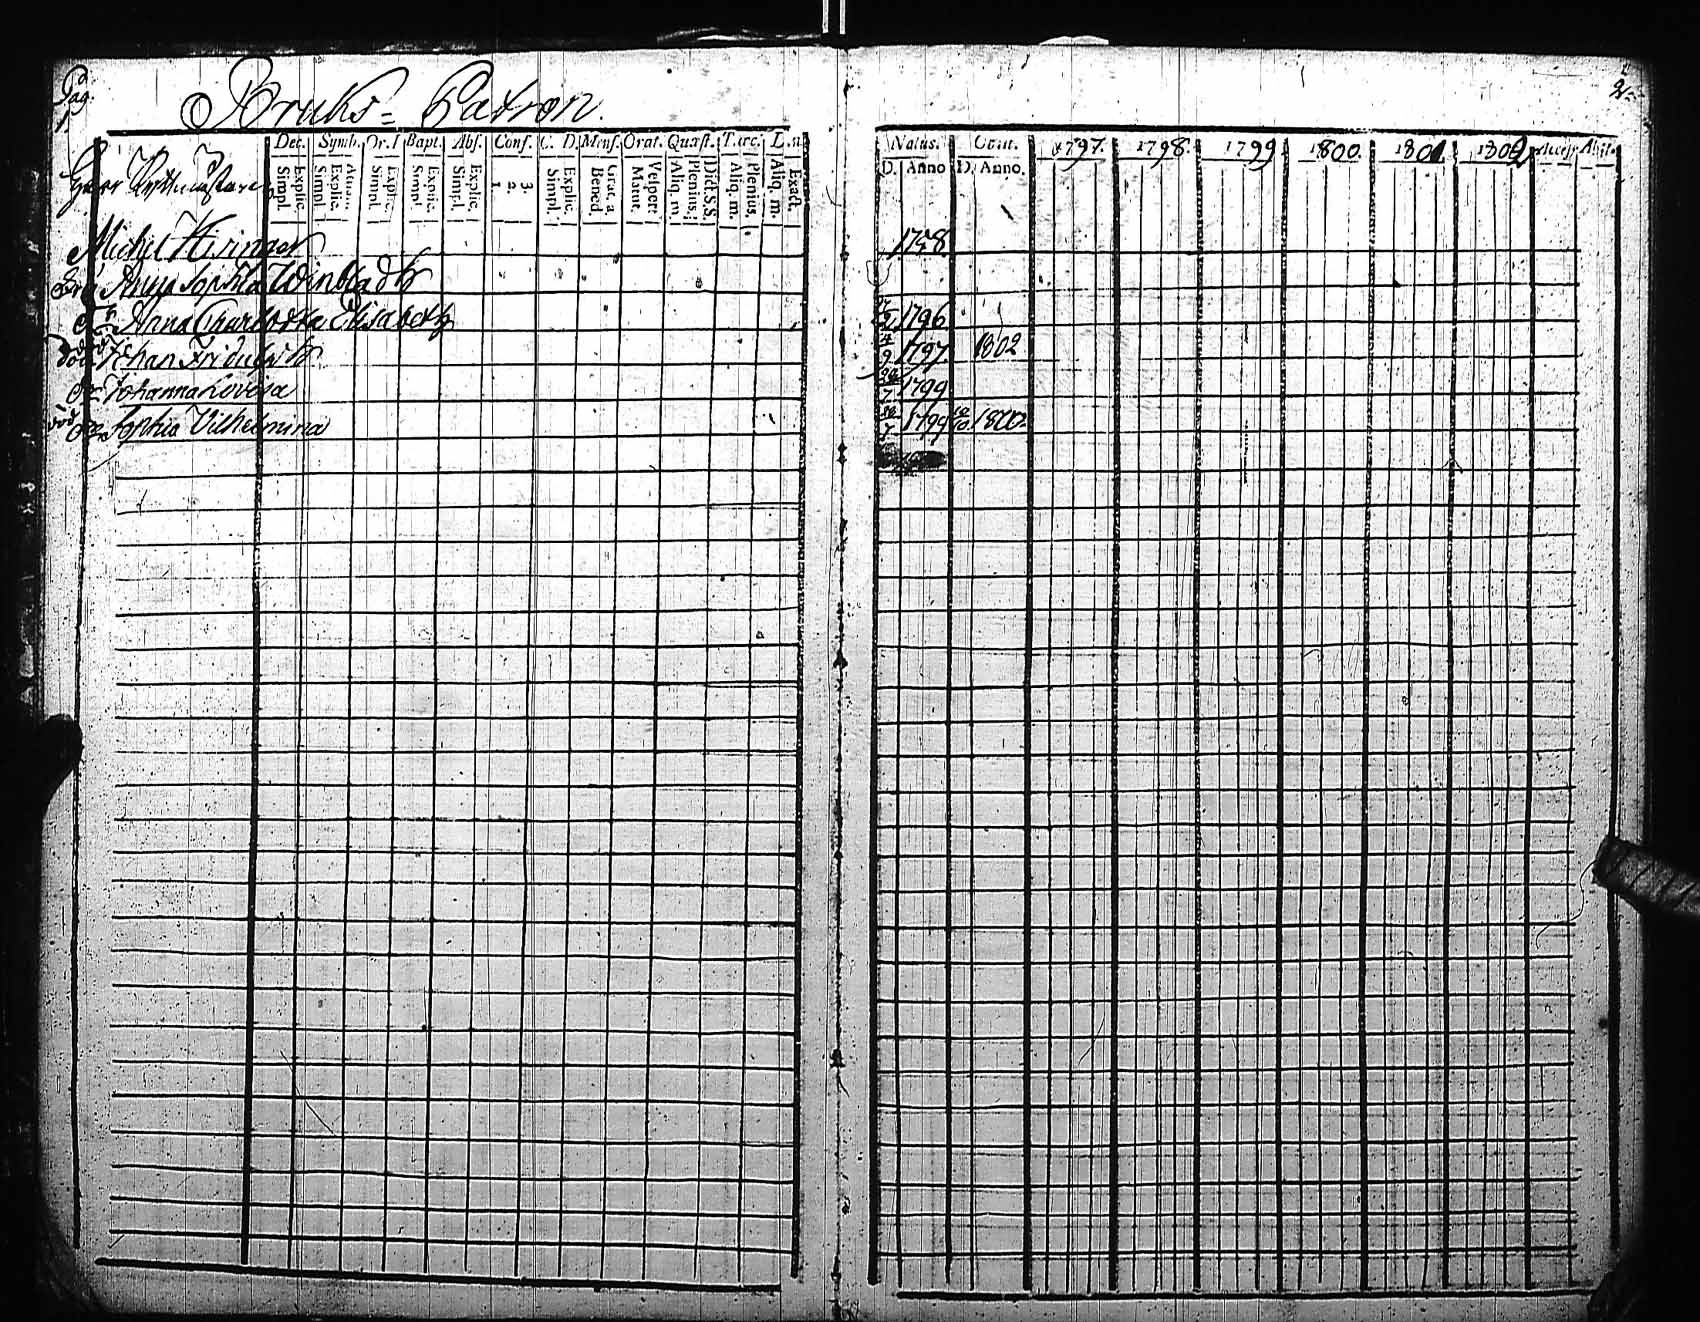 Pag. 1
Bruks= Patron.
2
Dec. Symb. Or. Bapt. Abs. Conf. C. D. Mens. Orat. Quæst. T. œc. L. n.
Simpl. Explic. Simpl. Explic. Athan. Simpl. Explic. Simpl. Explic. Simpl. Explic. 1. 2. 3. Simpl. Explic. Bened. Grat. a Matut. Vespert Aliq. m Plenius. Dict S.S. Aliq. m. Plenius. Aliq. m. Exact.
Natus. Obiit. 1797. 1798. 1799 1800. 1801. 1802 Access Abit.
D. Anno D. Anno.
Herr
Michel Hisinger 1758
Anna Sophia Winbladh
Anna Charlotta Elisabeth 1796
Johan Fridrich 4/9 1797 1802
Johanna Lovisa 1799
död Sophia Vilhelmina 1799 1800